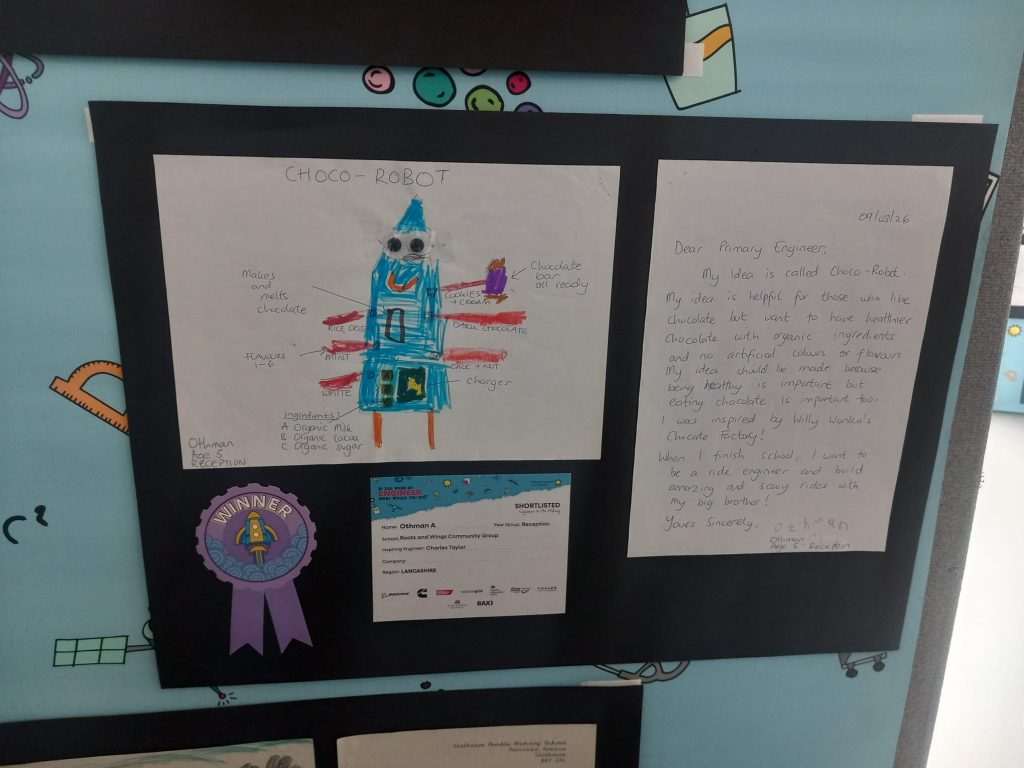 CHOCO-ROBOT
Makes
and
melts
chocolate
Chocolate
bar
all ready
COOKIES
+ CREAM
RICE CRISP
DARK CHOCOLATE
FLAVOURS
1-6
MINT
CHOC + NUT
WHITE
charger
Ingredients:
A Organic Milk
B Organic Cocoa
C Organic sugar
Othman
Age 5
RECEPTION
09/03/26
Dear Primary Engineer,
My Idea is called Choco-Robot.
My idea is helpful for those who like
chocolate but want to have healthier
chocolate with organic ingredients
and no artificial colours or flavours.
My idea should be made because
being healthy is important but
eating chocolate is important too.
I was inspired by Willy Wonka's
Chocate Factory!
When I finish school, I want to
be a ride engineer and build
amazing and scary rides with
my big brother!
Yours Sincerely,
Othman
Othman
Age 5 Reception
WINNER
IF YOU WERE AN
ENGINEER
WHAT WOULD YOU DO?
SHORTLISTED
Engineer in the Making
Name: Othman A
Year Group: Reception
School: Roots and Wings Community Group
Inspiring Engineer: Charles Taylor
Company:
Region: LANCASHIRE
BOEING
THALES
BAXI
c²
Clitheroe Pendle Primary School
Princess Avenue
Clitheroe
BB7 2AL